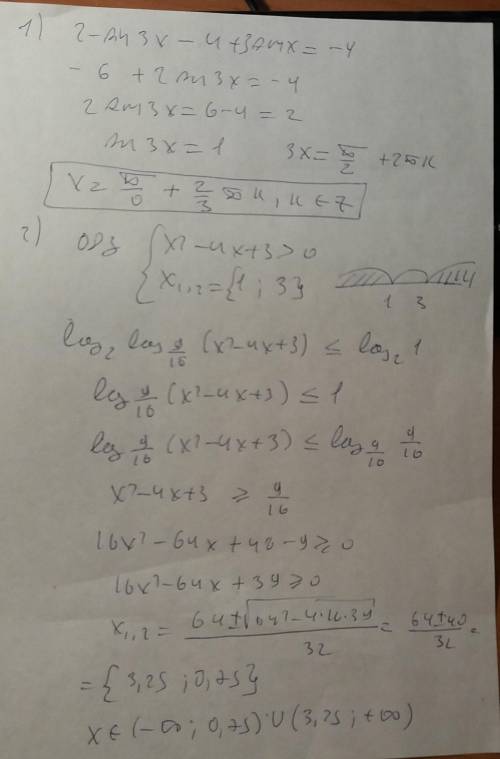 1) 2-sin3x - 4+3sinx = -4
- 6 + 2sin3x = -4
2sin3x = 6-4 = 2
sin3x = 1 3x = π/2 + 2πk
x = π/6 + 2/3 πk, k ∈ Z
2) ОДЗ { x²-4x+3>0
x₁,₂ = {1; 3} 1 3
log₂ log 9/16 (x²-4x+3) ≤ log₂ 1
log 9/16 (x²-4x+3) ≤ 1
log 9/16 (x²-4x+3) ≤ log 9/16 9/16
x²-4x+3 ≥ 9/16
16x²-64x+48-9≥0
16x²-64x+39≥0
x₁,₂ = (64±√(64²-4·16·39))/32 = (64±40)/32 =
= {3,25; 0,75}
x ∈ (-∞; 0,75) ∪ (3,25; +∞)